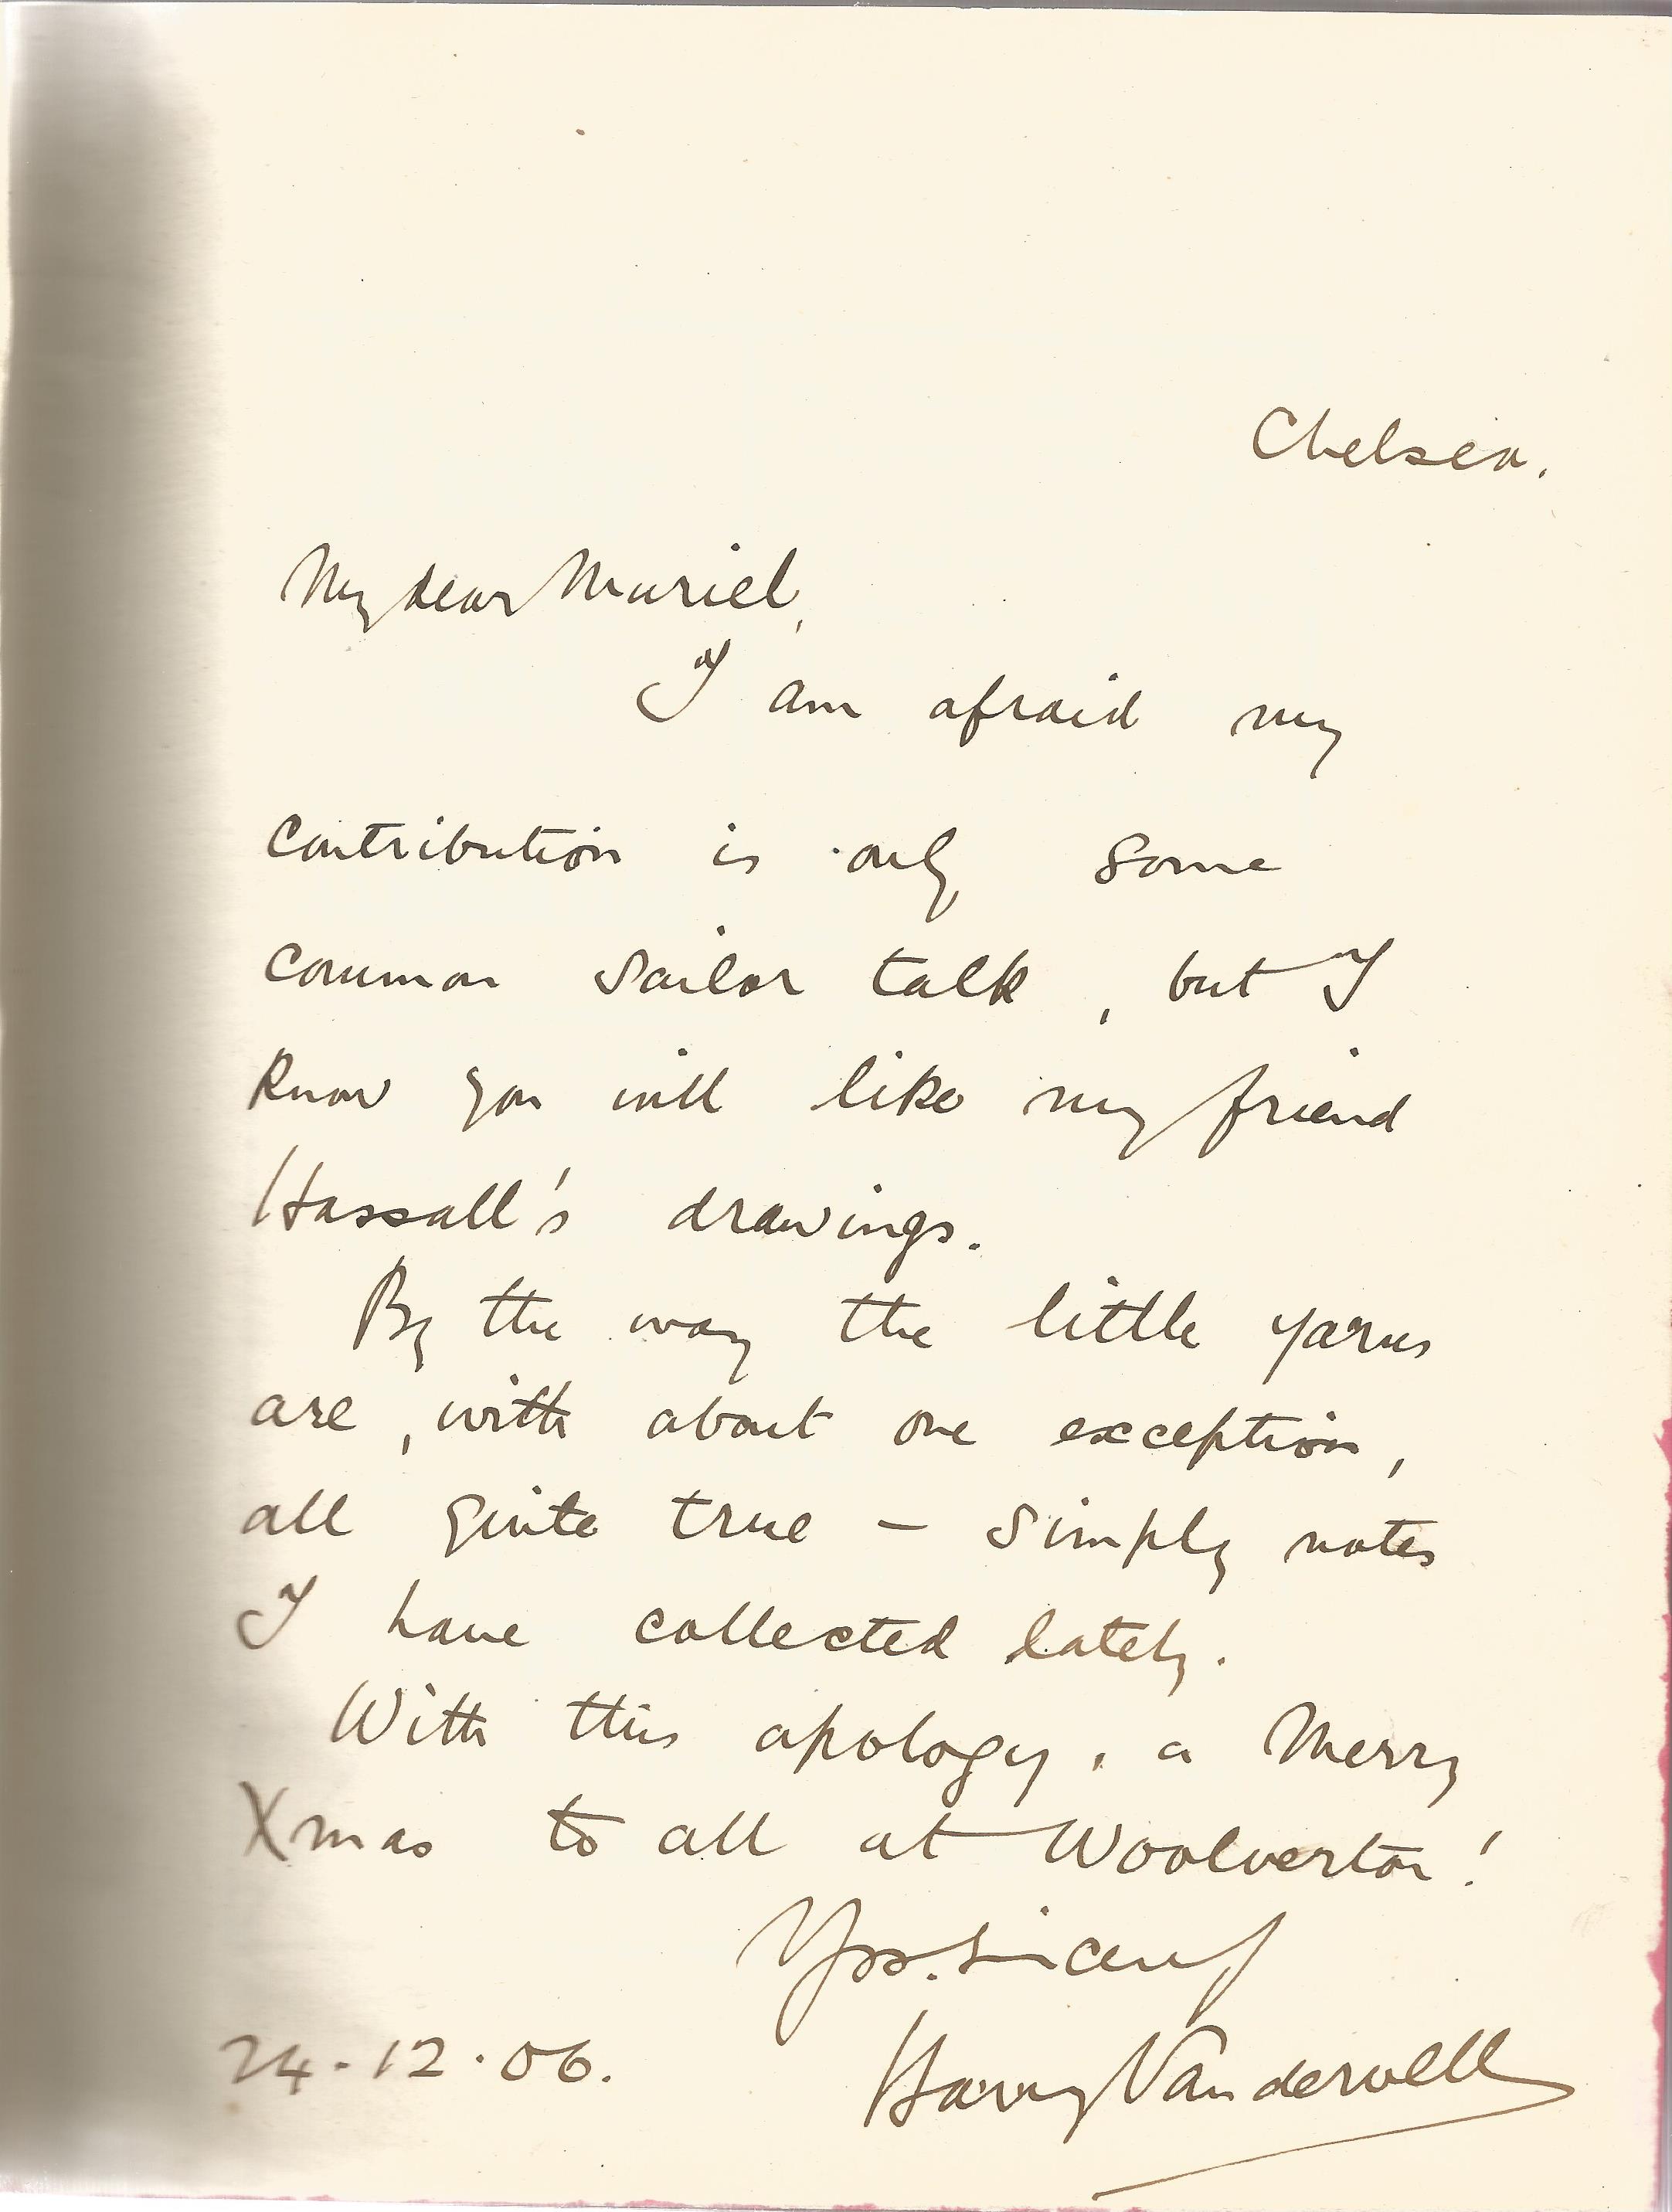 Chelsea.
My dear Muriel,
I am afraid my
contribution is only some
common sailor talk, but I
know you will like my friend
Hassall's drawings.
By the way the little yarns
are, with about one exception,
all quite true – simply notes
I have collected lately.
With this apology, a Merry
Xmas to all at Woolverton!
Yrs. sincerely
Harry Vandervell
24.12.06.